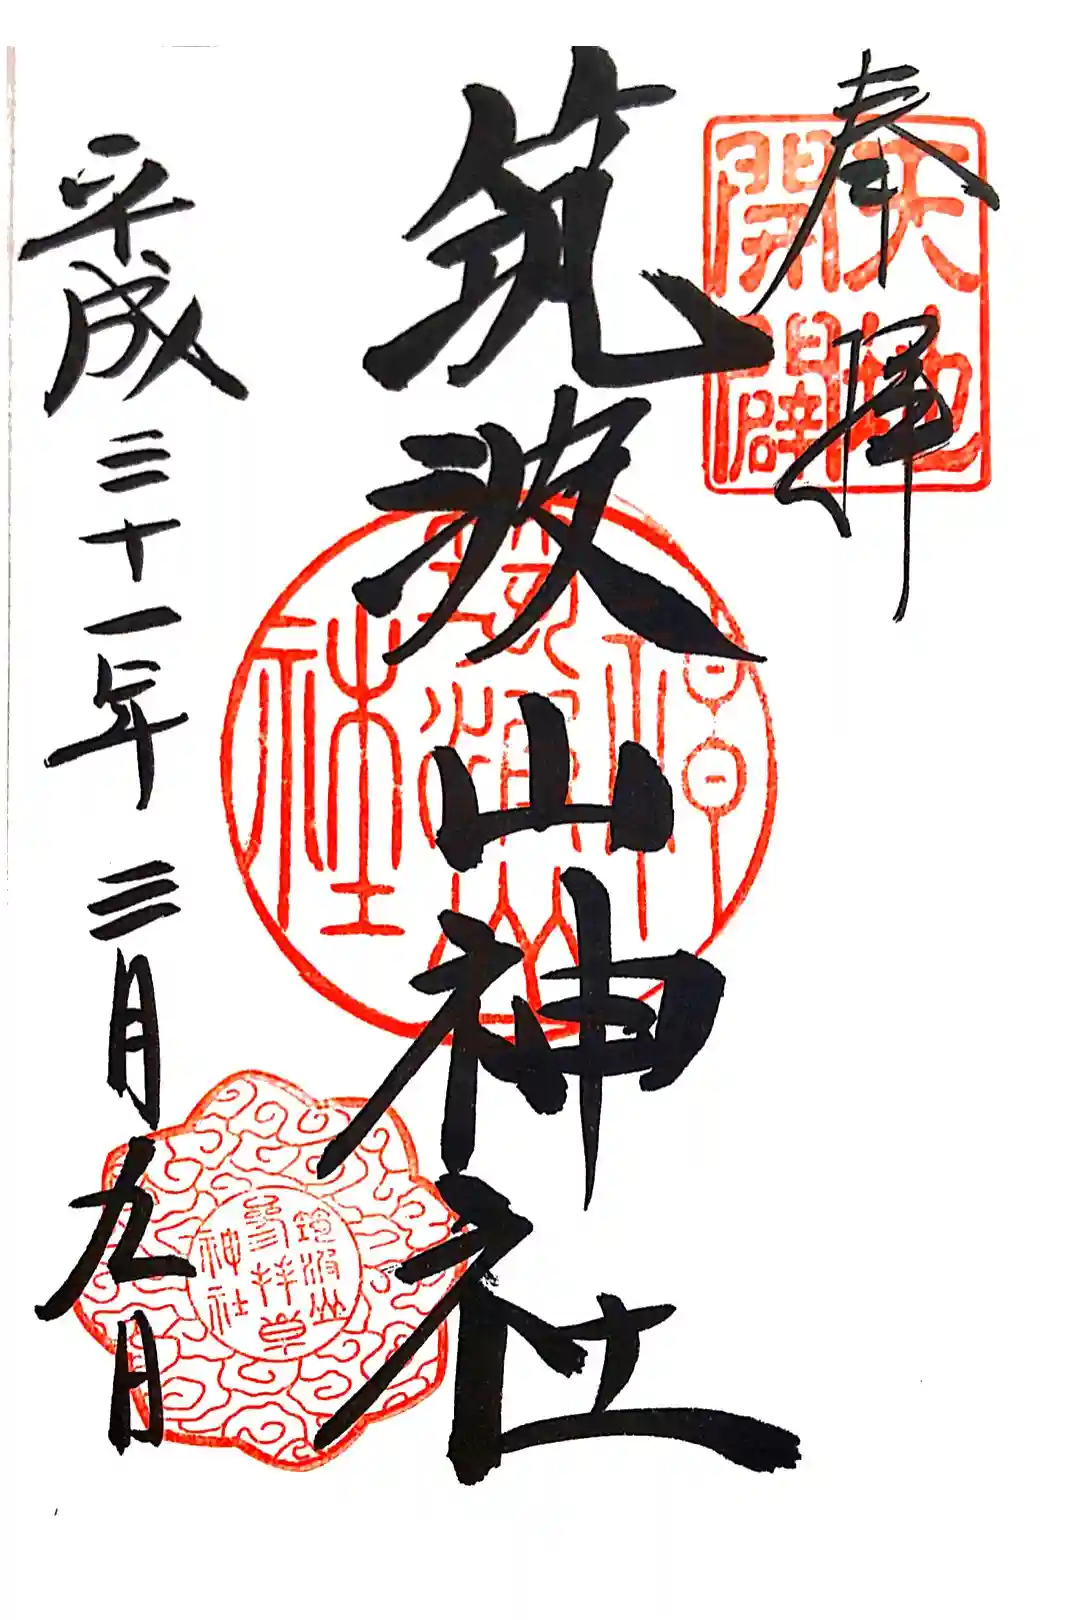 奉拝
天地
開闢
筑波山神社
平成三十一年三月九日
筑波山
参拝章
神社